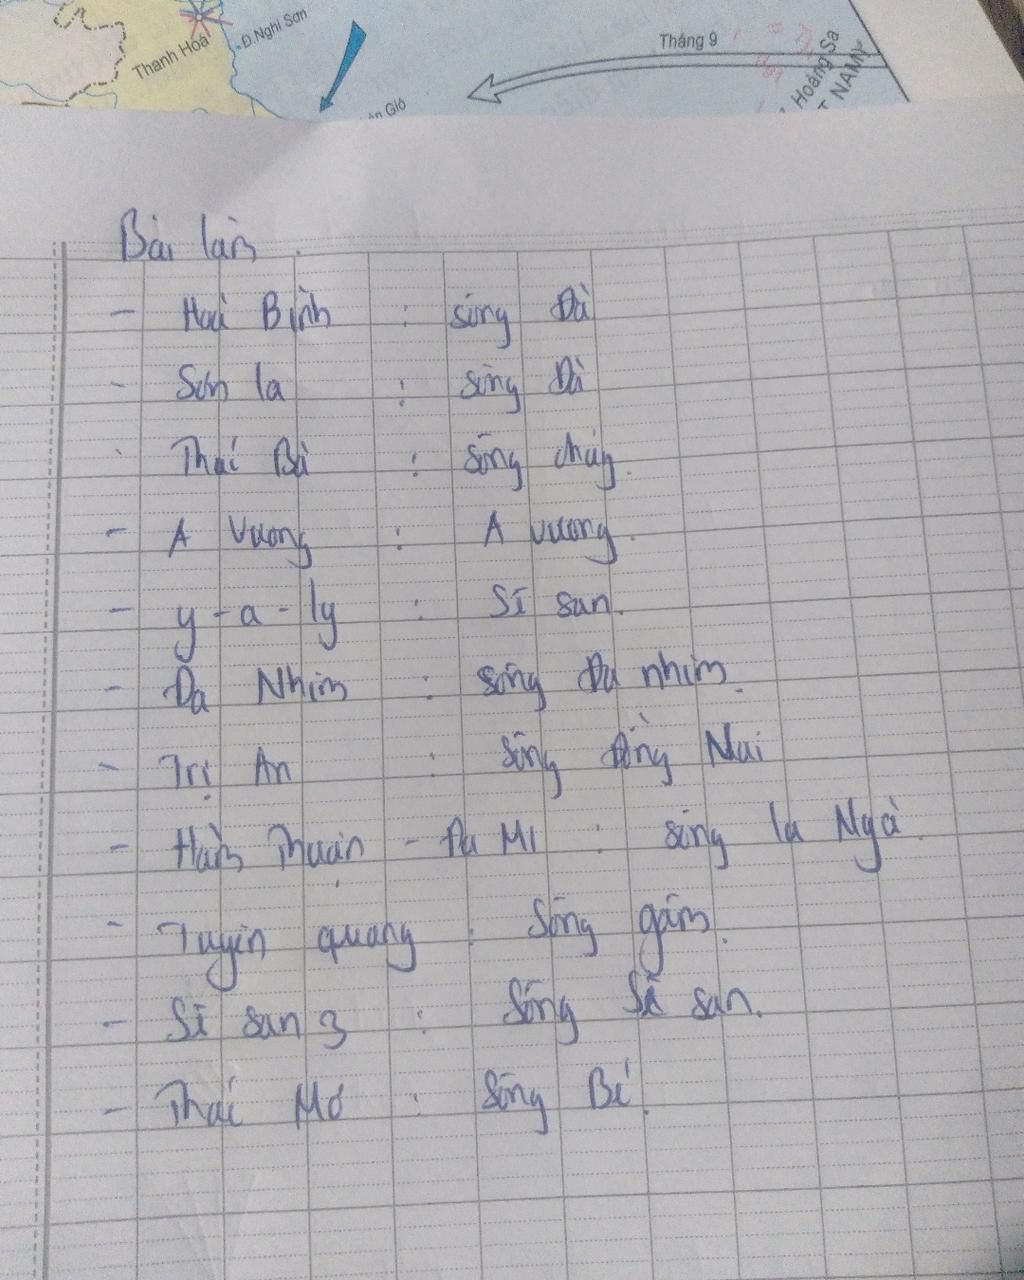 Thanh Hoá
Đ.Nghi Sơn
Tháng 9
Hoàng Sa
T NAM)
ồn Gió
Bài làm.
- Hoà Bình : sông Đà
- Sơn la : sông Đà
- Thác Bà : sông chảy.
- A Vương : A vương.
- y-a-ly : Sê san.
- Đa Nhim : sông Đa nhim.
- Trị An : sông Đồng Nai
- Hàm Thuận - Đa Mi : sông la Ngà.
- Tuyên quang : Sông gâm.
- Sê san 3 : Sông Sê san.
- Thác Mơ : Sông Bé.